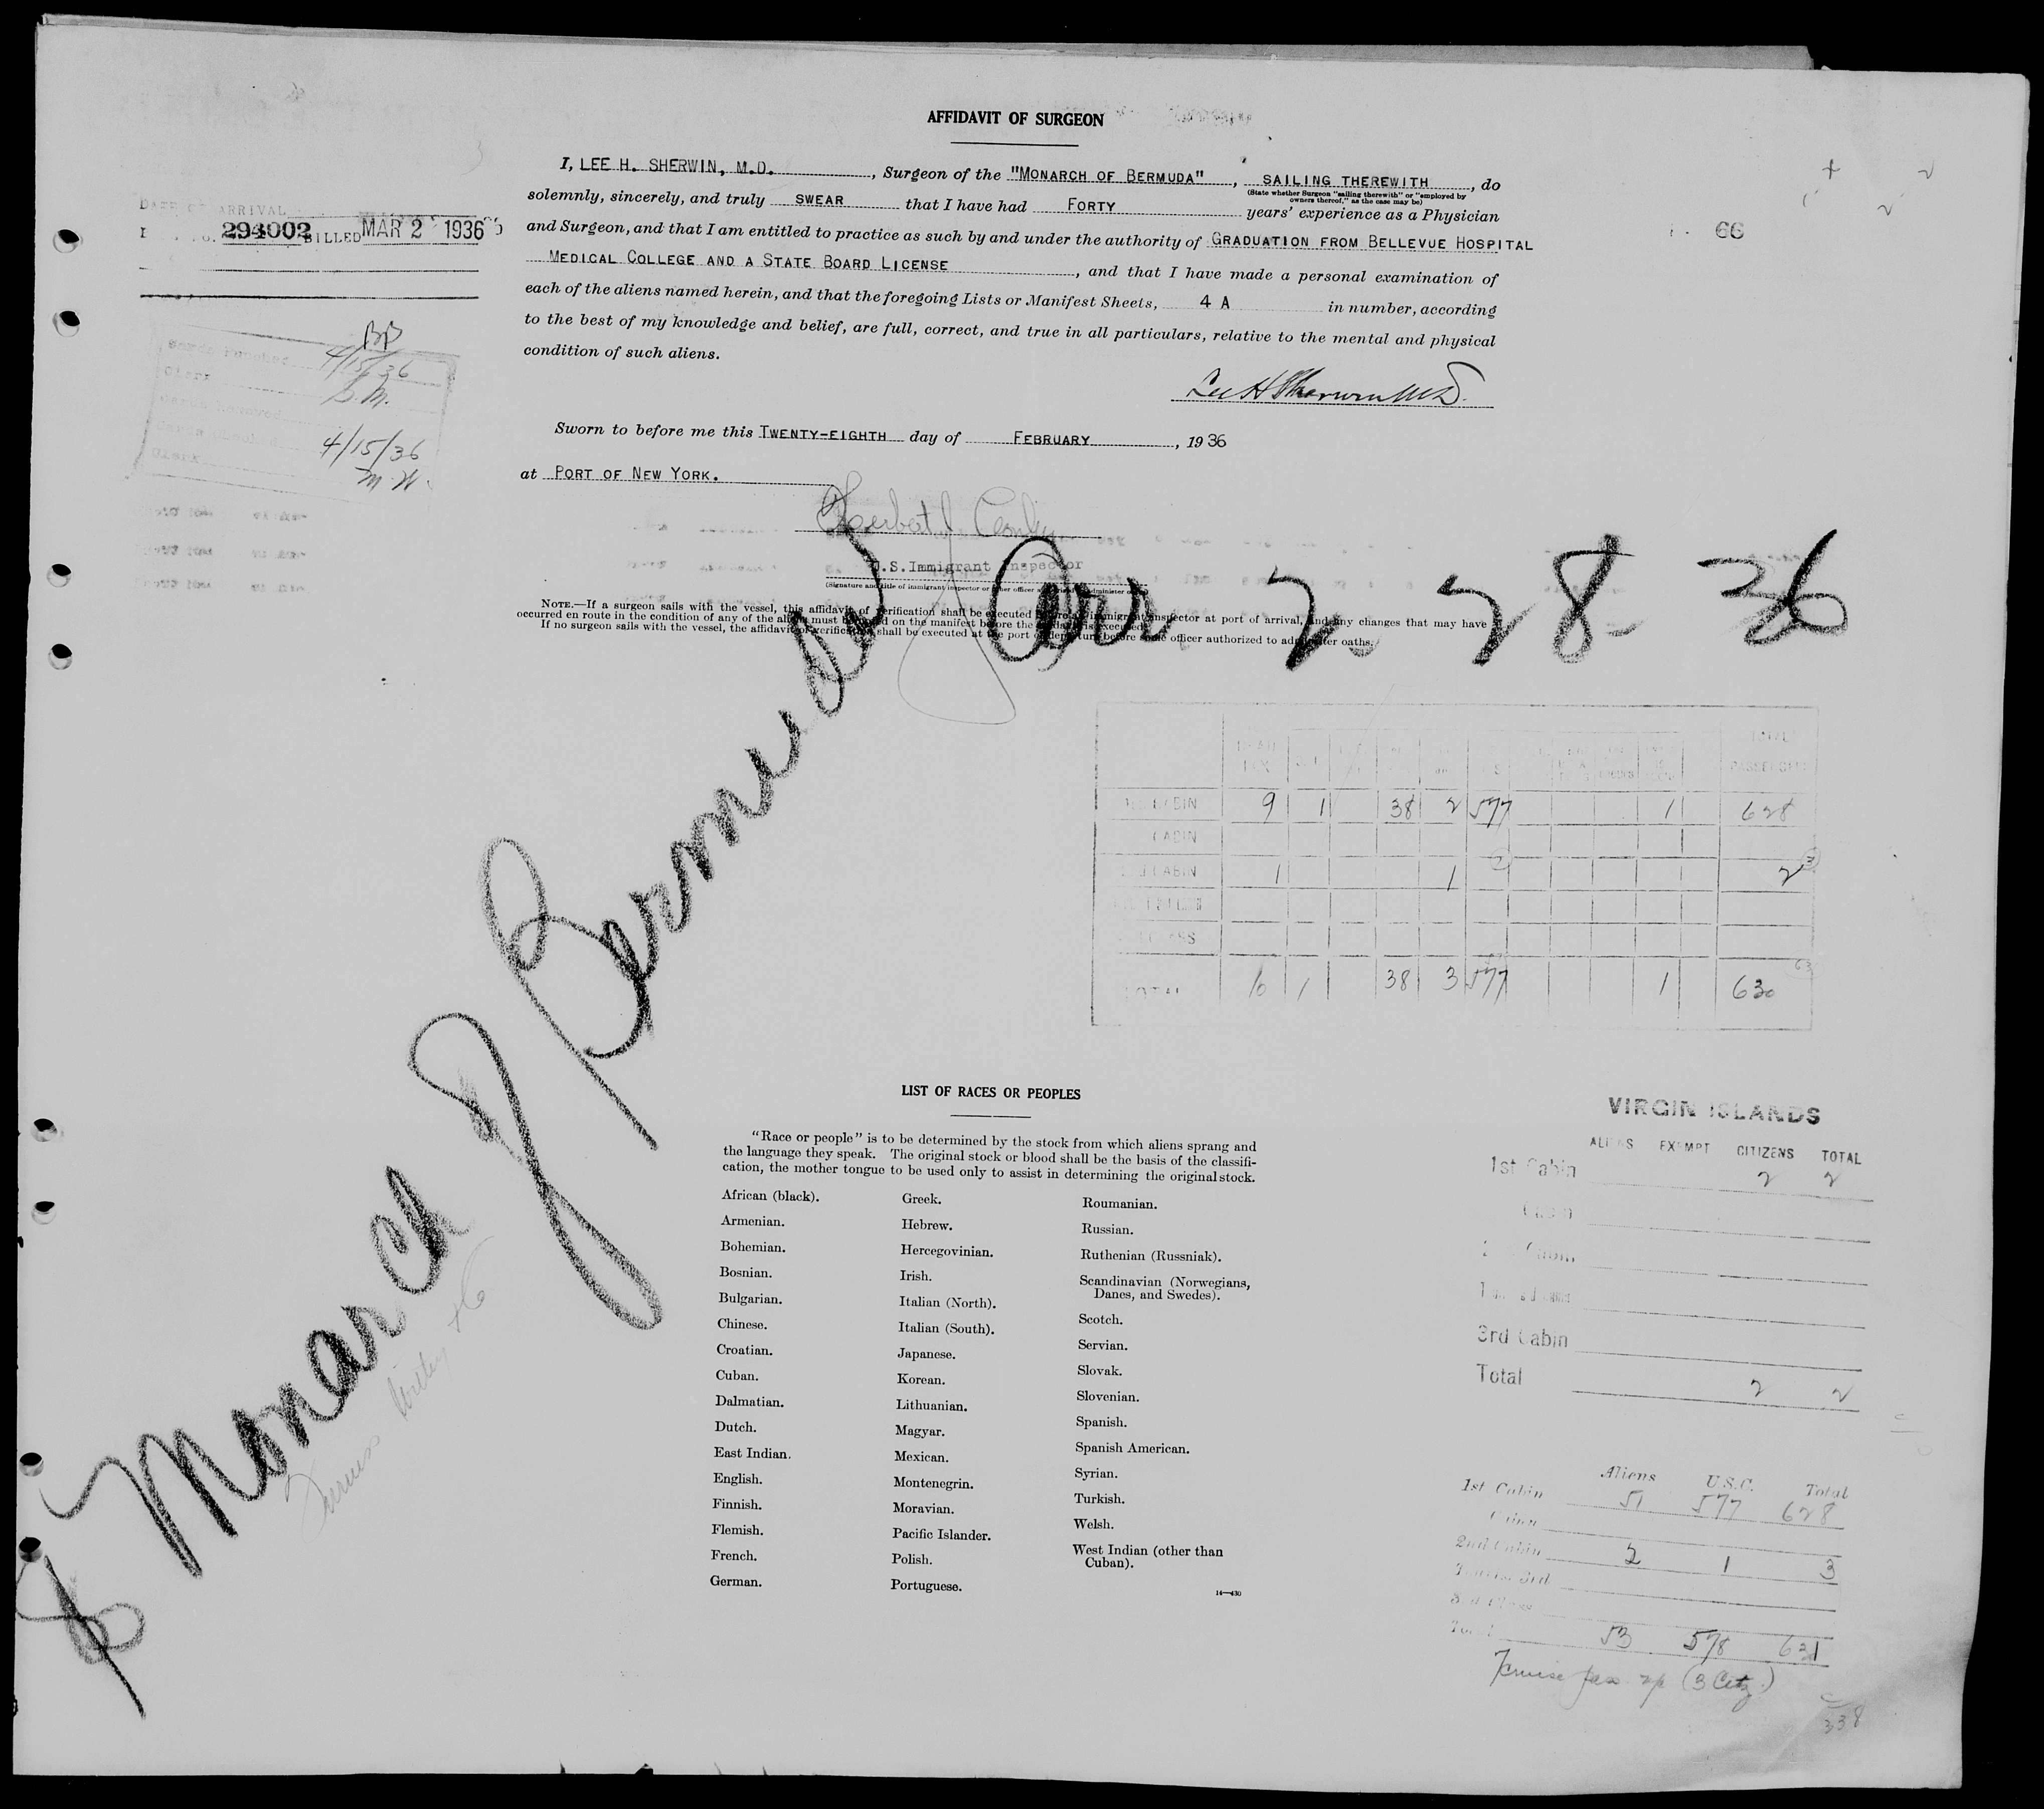 AFFIDAVIT OF SURGEON
I, LEE H. SHERWIN, M.D. , Surgeon of the "MONARCH OF BERMUDA" , SAILING THEREWITH , do
(State whether Surgeon "sailing therewith" or "employed by
owners thereof," as the case may be)
solemnly, sincerely, and truly SWEAR that I have had FORTY years' experience as a Physician
and Surgeon, and that I am entitled to practice as such by and under the authority of GRADUATION FROM BELLEVUE HOSPITAL
MEDICAL COLLEGE AND A STATE BOARD LICENSE , and that I have made a personal examination of
each of the aliens named herein, and that the foregoing Lists or Manifest Sheets, 4 A in number, according
to the best of my knowledge and belief, are full, correct, and true in all particulars, relative to the mental and physical
condition of such aliens.
Lee H Sherwin M.D.
Sworn to before me this TWENTY-EIGHTH day of FEBRUARY , 19 36
at PORT OF NEW YORK.
U.S. Immigrant Inspector
(Signature and title of immigrant inspector or other officer
NOTE.—If a surgeon sails with the vessel, this affidavit of verification shall be executed before immigrant inspector at port of arrival, and any changes that may have
occurred en route in the condition of any of the aliens must be noted on the manifest before the affidavit is executed.
If no surgeon sails with the vessel, the affidavit of verification shall be executed at the port of departure before some officer authorized to administer oaths.
DATE OF ARRIVAL
294002 BILLED MAR 2 1936
66
BB
Cards Punched 4/15/36
Clerk S.M.
Cards Removed
Cards Checked 4/15/36
Clerk M.W.
Arr 2 28 36
Monarch of Bermuda
TOTAL
PASSENGERS
1st CABIN 9 1 38 2 577 1 628
CABIN
2nd CABIN 1 1 2
CLASS
TOTAL 10 1 38 3 577 1 630
LIST OF RACES OR PEOPLES
"Race or people" is to be determined by the stock from which aliens sprang and
the language they speak. The original stock or blood shall be the basis of the classifi-
cation, the mother tongue to be used only to assist in determining the original stock.
African (black).
Armenian.
Bohemian.
Bosnian.
Bulgarian.
Chinese.
Croatian.
Cuban.
Dalmatian.
Dutch.
East Indian.
English.
Finnish.
Flemish.
French.
German.
Greek.
Hebrew.
Hercegovinian.
Irish.
Italian (North).
Italian (South).
Japanese.
Korean.
Lithuanian.
Magyar.
Mexican.
Montenegrin.
Moravian.
Pacific Islander.
Polish.
Portuguese.
Roumanian.
Russian.
Ruthenian (Russniak).
Scandinavian (Norwegians,
Danes, and Swedes).
Scotch.
Servian.
Slovak.
Slovenian.
Spanish.
Spanish American.
Syrian.
Turkish.
Welsh.
West Indian (other than
Cuban).
14—430
VIRGIN ISLANDS
ALIENS EXEMPT CITIZENS TOTAL
1st Cabin 2 2
Cabin
2nd Cabin
3rd Cabin
Total 2 2
Aliens U.S.C. Total
1st Cabin 51 577 628
Cabin
2nd Cabin 2 1 3
Tourist 3rd
3rd Class
Total 53 578 631
(3 Citz.)
338